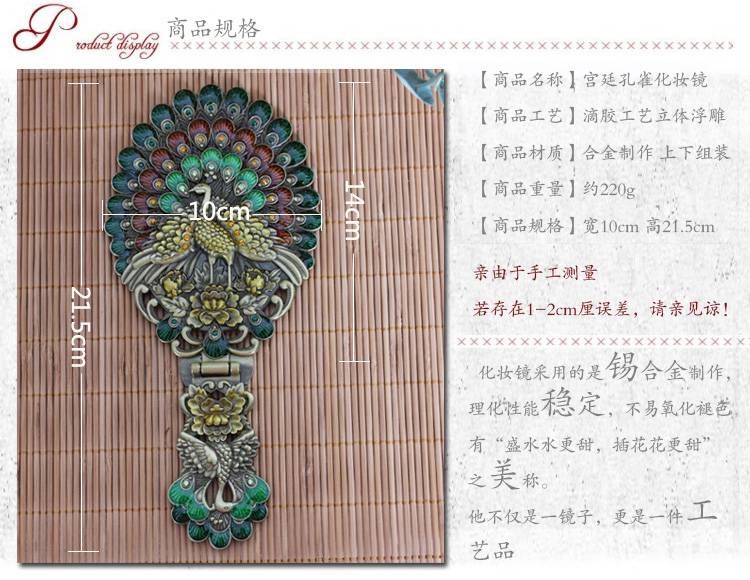 Product display 商品规格
10cm
14cm
21.5cm
【商品名称】宫廷孔雀化妆镜
【商品工艺】滴胶工艺立体浮雕
【商品材质】合金制作 上下组装
【商品重量】约220g
【商品规格】宽10cm 高21.5cm
亲由于手工测量
若存在1-2cm厘误差，请亲见谅！
化妆镜采用的是锡合金制作，
理化性能稳定，不易氧化褪色
有“盛水水更甜，插花花更甜”
之美称。
他不仅是一镜子，更是一件工
艺品